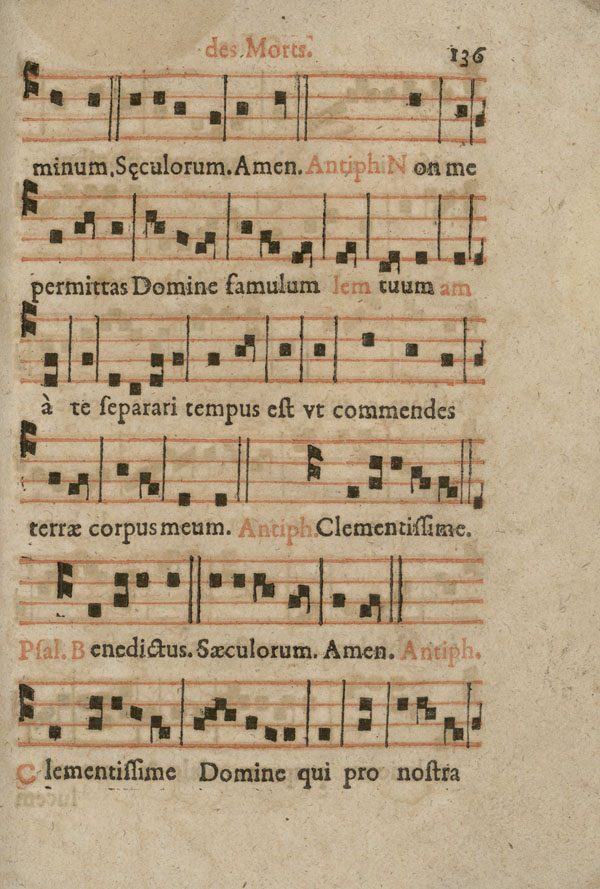 des Morts. 136
minum. Sęculorum. Amen. Antiph N on me
permittas Domine famulum lem tuum am
à te ſeparari tempus eſt vt commendes
terræ corpus meum. Antiph. Clementiſſime.
Pſal. B enedictus. Sæculorum. Amen. Antiph.
C lementiſſime Domine qui pro noſtra